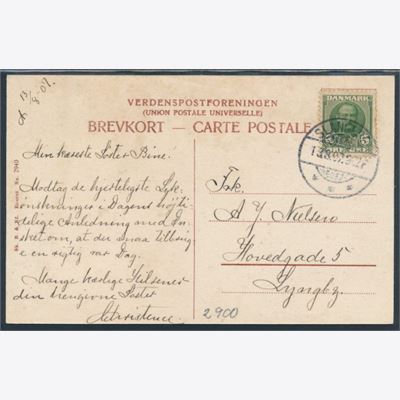 d 13/8-07.
VERDENSPOSTFORENINGEN
(UNION POSTALE UNIVERSELLE)
BREVKORT – CARTE POSTALE
DANMARK
5
Min kæreste Søster Bine!
Modtag de hjerteligste Lyk
ønskninger i Dagens højti
delige Anledning med Øn
sket om, at du maa tilbrin
ge en rigtig rar Dag.
Mange kærlige Hilsener
din hengivne Søster
Frk.
A. J. Nielsen
Hovedgade 5
Lyngby.
2900